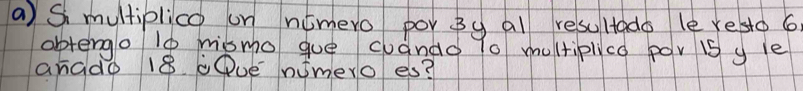 a) Si multiplico un número por 3 y al resultado le resto 6,
obtengo lo mismo que cuando lo multiplico por 15 y le
añado 18. ¿Qué número es?